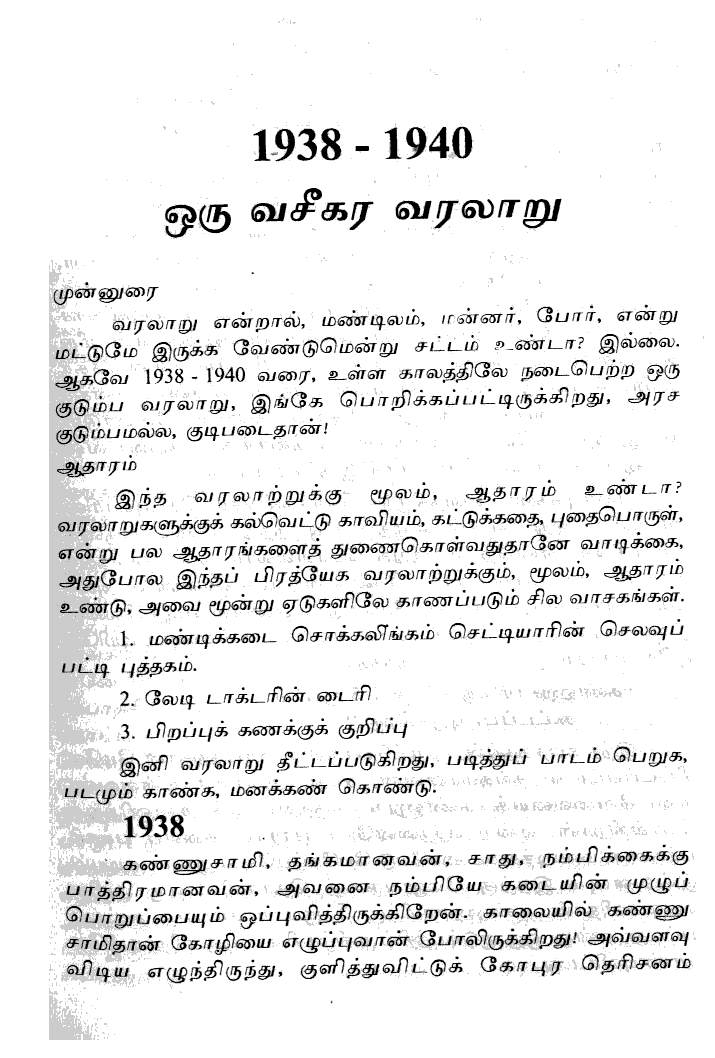 1938 - 1940
ஒரு வசீகர வரலாறு
முன்னுரை
வரலாறு என்றால், மண்டிலம், மன்னர், போர், என்று
மட்டுமே இருக்க வேண்டுமென்று சட்டம் உண்டா? இல்லை.
ஆகவே 1938 - 1940 வரை, உள்ள காலத்திலே நடைபெற்ற ஒரு
குடும்ப வரலாறு, இங்கே பொறிக்கப்பட்டிருக்கிறது, அரச
குடும்பமல்ல, குடிபடைதான்!
ஆதாரம்
இந்த வரலாற்றுக்கு மூலம், ஆதாரம் உண்டா?
வரலாறுகளுக்குக் கல்வெட்டு காவியம், கட்டுக்கதை, புதைபொருள்,
என்று பல ஆதாரங்களைத் துணைகொள்வதுதானே வாடிக்கை,
அதுபோல இந்தப் பிரத்யேக வரலாற்றுக்கும், மூலம், ஆதாரம்
உண்டு, அவை மூன்று ஏடுகளிலே காணப்படும் சில வாசகங்கள்.
1. மண்டிக்கடை சொக்கலிங்கம் செட்டியாரின் செலவுப்
பட்டி புத்தகம்.
2. லேடி டாக்டரின் டைரி
3. பிறப்புக் கணக்குக் குறிப்பு
இனி வரலாறு தீட்டப்படுகிறது, படித்துப் பாடம் பெறுக,
படமும் காண்க, மனக்கண் கொண்டு.
1938
கண்ணுசாமி, தங்கமானவன், சாது, நம்பிக்கைக்கு
பாத்திரமானவன், அவனை நம்பியே கடையின் முழுப்
பொறுப்பையும் ஒப்புவித்திருக்கிறேன். காலையில் கண்ணு
சாமிதான் கோழியை எழுப்புவான் போலிருக்கிறது! அவ்வளவு
விடிய எழுந்திருந்து, குளித்துவிட்டுக் கோபுர தெரிசனம்